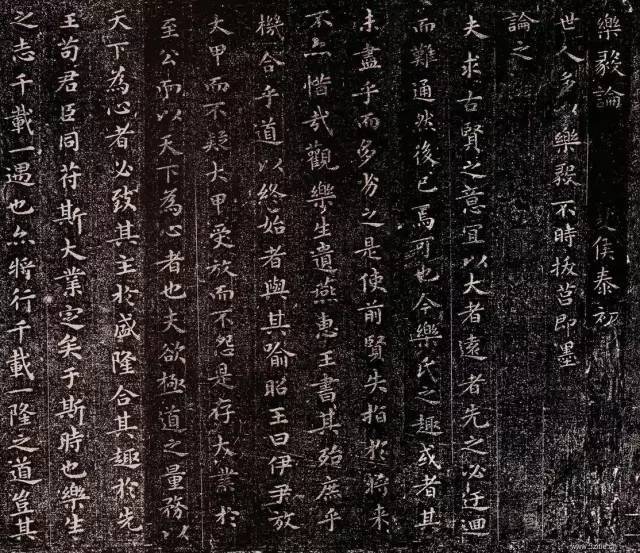 樂毅論 侯泰初
世人多以樂毅不時拔莒即墨
論之
夫求古賢之意宜以大者遠者先之必迂迴
而難通然後已焉可也今樂氏之趣或者其
未盡乎而多劣之是使前賢失指於將来
不亦惜哉觀樂生遺燕惠王書其殆庶乎
機合乎道以終始者與其喻昭王曰伊尹放
大甲而不疑大甲受放而不怨是存大業於
至公而以天下為心者也夫欲極道之量務以
天下為心者必致其主於盛隆合其趣於先
王苟君臣同苻斯大業定矣于斯時也樂生
之志千載一遇也亦將行千載一隆之道豈其